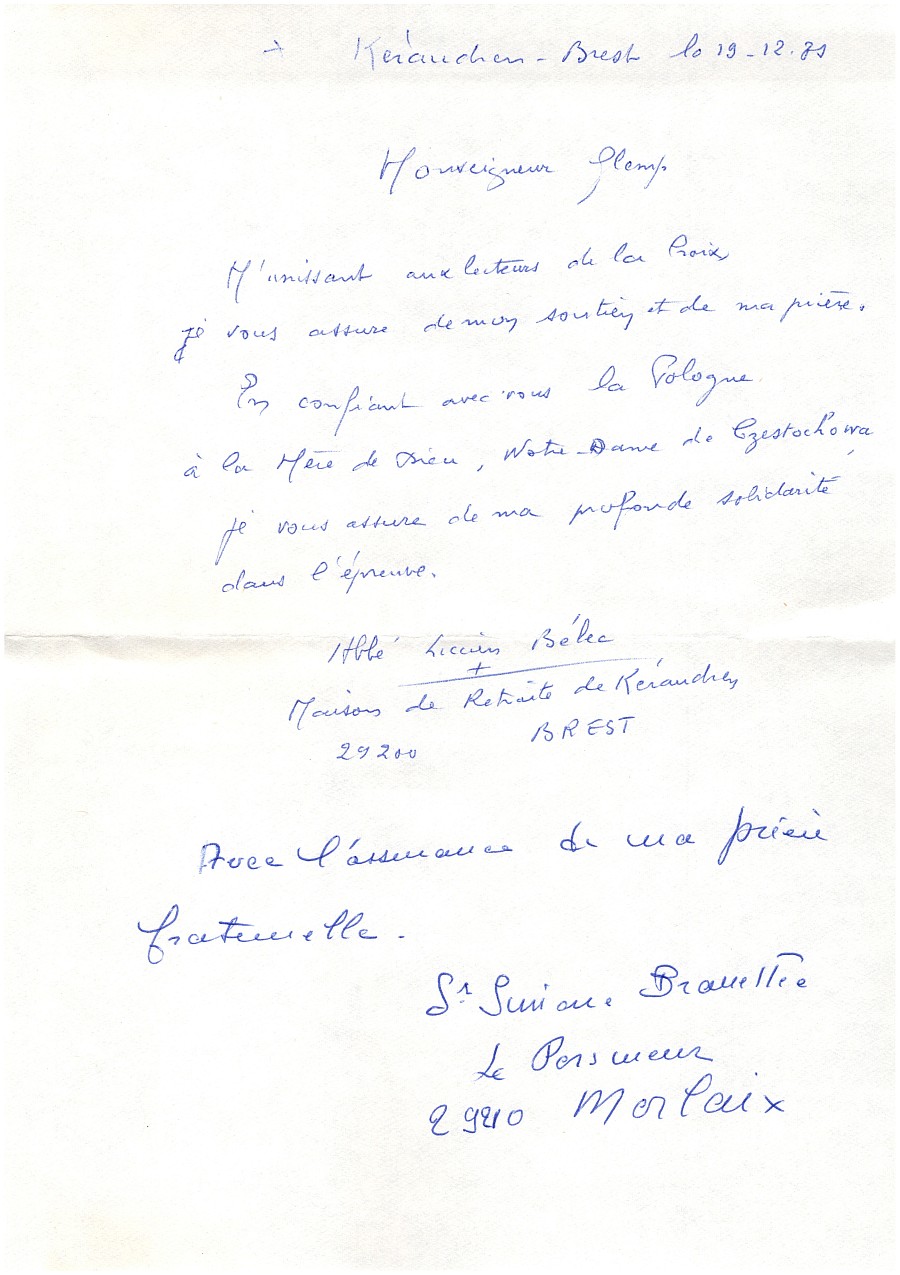 + Kéraudren - Brest le 19-12-81
Monseigneur Glemp
M'unissant aux lecteurs de la Croix,
je vous assure de mon soutien et de ma prière.
En confiant avec vous la Pologne
à la Mère de Dieu, Notre-Dame de Czestochowa,
je vous assure de ma profonde solidarité
dans l'épreuve.
Abbé Lucien Bélec
+
Maison de Retraite de Kéraudren
29200 BREST
Avec l'assurance de ma prière
fraternelle.
Sr
Le Porsmeur
29210 Morlaix